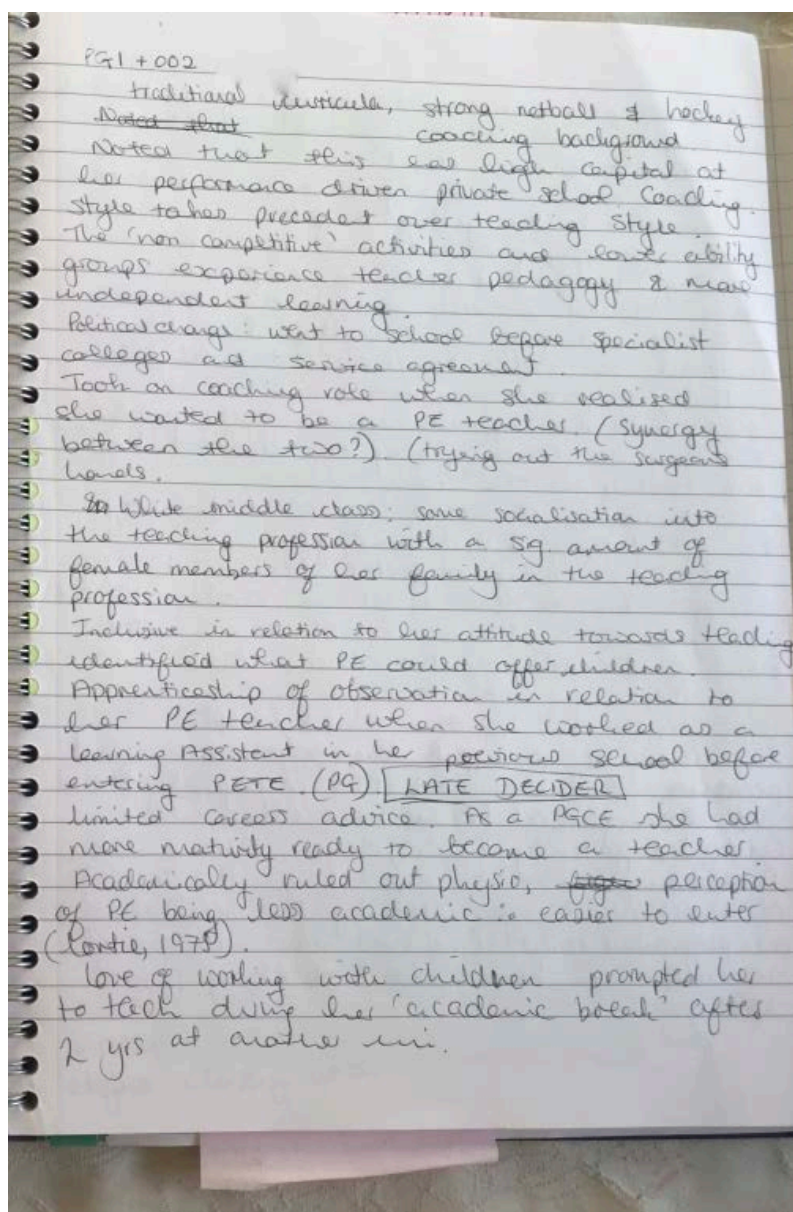 PG1 + 002
traditional curricula, strong netball & hockey
Noted that coaching background
Noted that this has high capital at
her performance driven private school. Coaching
style takes precedent over teaching style.
The 'non competitive' activities and lower ability
groups experience teacher pedagogy & more
independent learning.
Political change: went to school before specialist
colleges and service agreement.
Took on coaching role when she realised
she wanted to be a PE teacher. (Synergy
between the two?) (trying out the surgeons
hands.
White middle class: some socialisation into
the teaching profession with a sig. amount of
female members of her family in the teaching
profession.
Inclusive in relation to her attitude towards teaching
identified what PE could offer children.
Apprenticeship of observation in relation to
her PE teacher when she worked as a
learning Assistant in her previous school before
entering PETE. (PG) LATE DECIDER
limited careers advice. As a PGCE she had
more maturity ready to become a teacher.
Academically ruled out physio, perception
of PE being 'less academic ∴ easier to enter
(Lortie, 1975).
Love of working with children prompted her
to teach during her 'academic break' after
2 yrs at another uni.